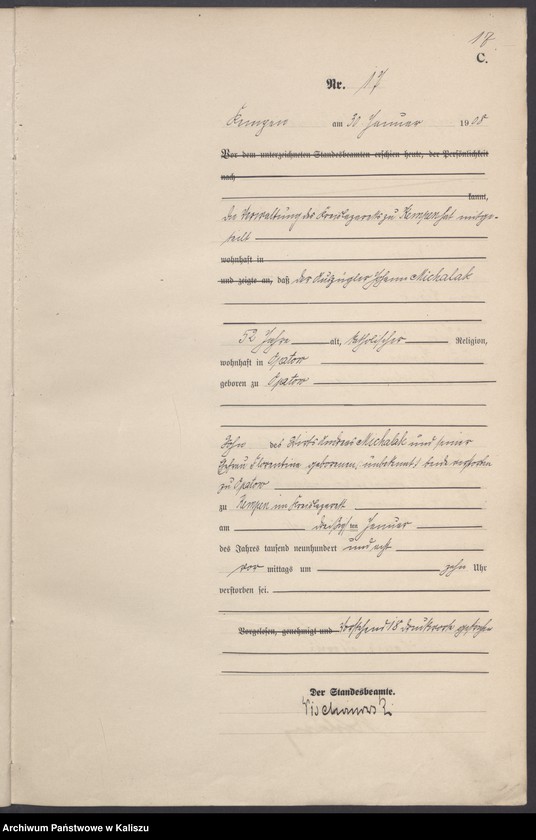 18
C.
Nr. 17
Kempen am 30 Januar 1908
Vor dem unterzeichneten Standesbeamten erschien heute, der Persönlichkeit
nach
kannt,
Die Verwaltung des Kreislazarets zu Kempen hat mitge-
teilt
wohnhaft in
und zeigte an, daß der Auszügler Johann Michalak
52 Jahre alt, katholischer Religion,
wohnhaft in Opatow
geboren zu Opatow
Sohn des Wirts Andreas Michalak und seiner
Ehefrau Florentine geborenen (unbekannt) beide verstorben
zu Opatow
zu Kempen im Kreislazaret
am dreißigsten Januar
des Jahres tausend neunhundert und acht
vor mittags um zehn Uhr
verstorben sei.
Vorgelesen, genehmigt und Vorstehend 18 Druckworte gestrichen
Der Standesbeamte.
Archiwum Państwowe w Kaliszu